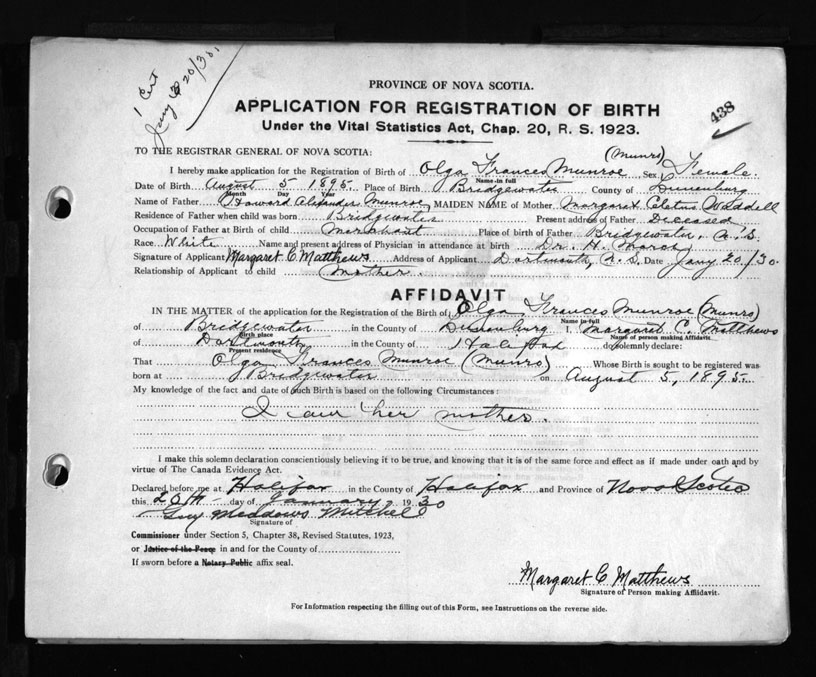 1 Cert
Jany 20/30.
PROVINCE OF NOVA SCOTIA.
438
APPLICATION FOR REGISTRATION OF BIRTH
Under the Vital Statistics Act, Chap. 20, R. S. 1923.
TO THE REGISTRAR GENERAL OF NOVA SCOTIA:
(Munro)
I hereby make application for the Registration of Birth of Olga Frances Munroe, Sex Female
Name in full
Date of Birth August 5 1895. Place of Birth Bridgewater County of Lunenburg
Month Day Year
Name of Father Howard Alexander Munroe, MAIDEN NAME of Mother Margaret Cletus Waddell
Residence of Father when child was born Bridgewater Present address of Father Deceased
Occupation of Father at Birth of child Merchant Place of birth of Father Bridgewater, N.S.
Race White Name and present address of Physician in attendance at birth Dr. H. March
Signature of Applicant Margaret C Matthews Address of Applicant Dartmouth, N.S. Date Jany 20/30.
Relationship of Applicant to child Mother.
AFFIDAVIT
IN THE MATTER of the application for the Registration of the Birth of Olga Frances Munroe (Munro)
Name in full
of Bridgewater in the County of Lunenburg I, Margaret C. Matthews
Birth place Name of person making Affidavit.
of Dartmouth in the County of Halifax do solemnly declare:
Present residence
That Olga Frances Munroe (Munro) Whose Birth is sought to be registered was
born at Bridgewater on August 5, 1895.
My knowledge of the fact and date of such Birth is based on the following Circumstances:
I am her mother.
I make this solemn declaration conscientiously believing it to be true, and knowing that it is of the same force and effect as if made under oath and by
virtue of The Canada Evidence Act.
Declared before me at Halifax in the County of Halifax and Province of Nova Scotia
this 20th day of January 1930
Guy Meddows Mitchell
Signature of
Commissioner under Section 5, Chapter 38, Revised Statutes, 1923,
or Justice of the Peace in and for the County of
If sworn before a Notary Public affix seal.
Margaret C Matthews
Signature of Person making Affidavit.
For Information respecting the filling out of this Form, see Instructions on the reverse side.